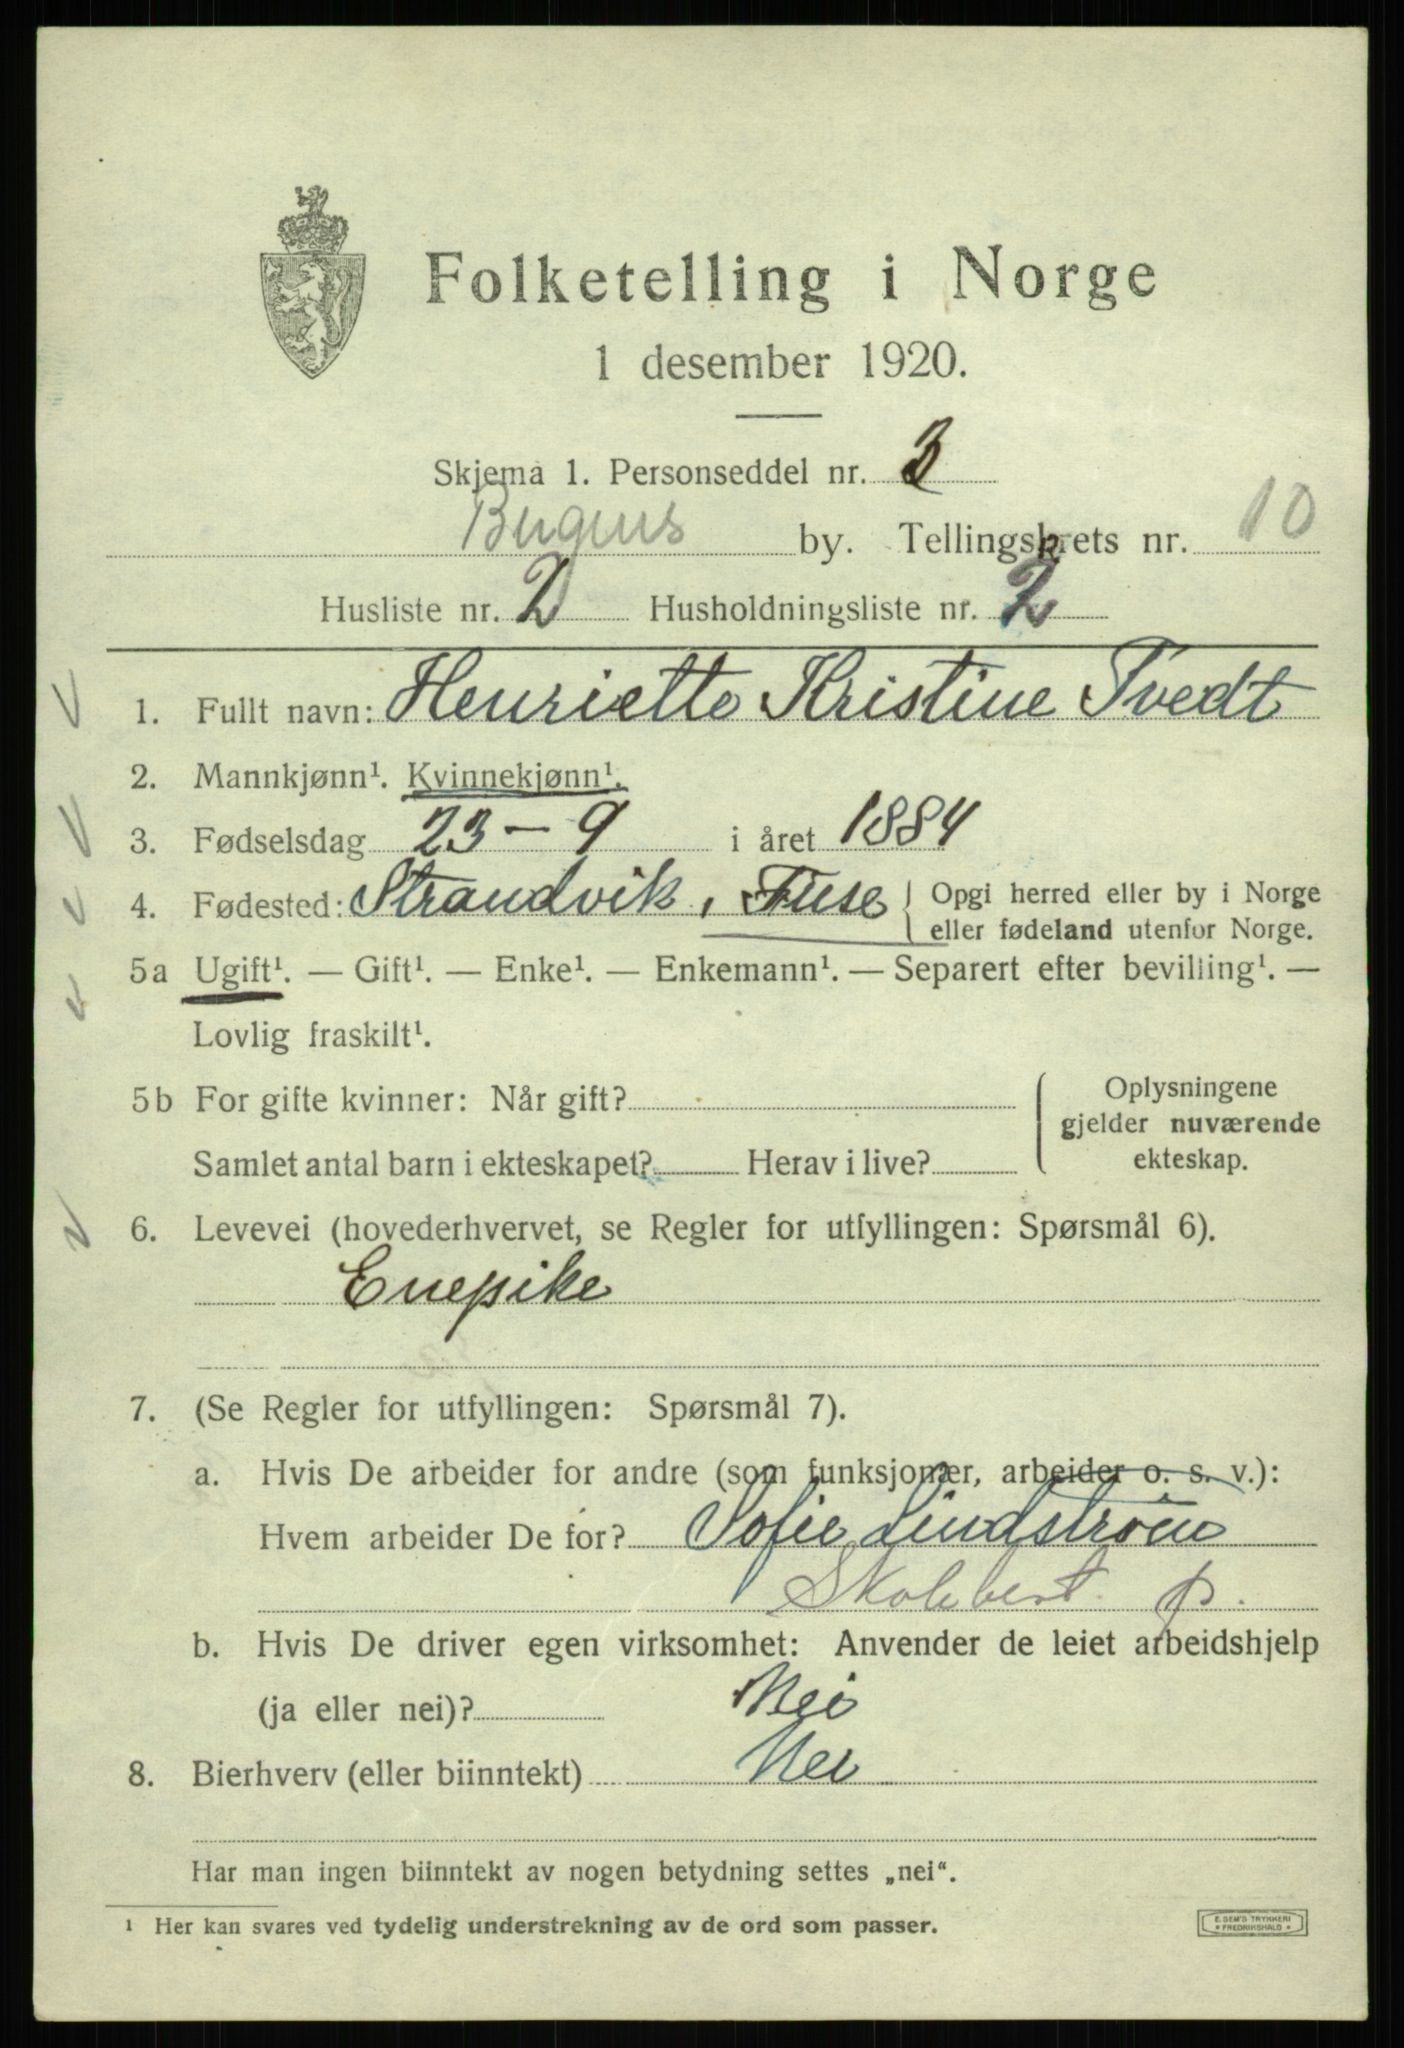 Folketelling i Norge
1 desember 1920.
Skjema 1. Personseddel nr. 3
Bergens by. Tellingskrets nr. 10
Husliste nr. 2 Husholdningsliste nr. 2
1. Fullt navn: Henriette Kristine Tvedt
2. Mannkjønn¹. Kvinnekjønn¹.
3. Fødselsdag 23 – 9 i året 1884
4. Fødested: Strandvik, Fuse { Opgi herred eller by i Norge
eller fødeland utenfor Norge.
5a Ugift¹. — Gift¹. — Enke¹. — Enkemann¹. — Separert efter bevilling¹. —
Lovlig fraskilt¹.
5b For gifte kvinner: Når gift?
Samlet antal barn i ekteskapet? Herav i live?
Oplysningene
gjelder nuværende
ekteskap.
6. Levevei (hovederhvervet, se Regler for utfyllingen: Spørsmål 6).
Enepike
7. (Se Regler for utfyllingen: Spørsmål 7).
a. Hvis De arbeider for andre (som funksjonær, arbeider o. s. v.):
Hvem arbeider De for? Sofie Lindstrøm
p.
b. Hvis De driver egen virksomhet: Anvender de leiet arbeidshjelp
(ja eller nei)? Nei
8. Bierhverv (eller biinntekt) Nei
Har man ingen biinntekt av nogen betydning settes „nei“.
¹ Her kan svares ved tydelig understrekning av de ord som passer.
E. SEM'S TRYKKERI
* FREDRIKSHALD *